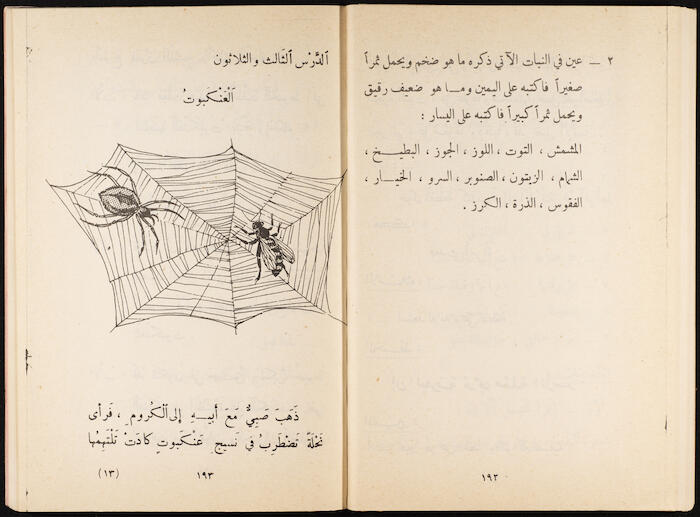 ٢ – عين في النبات الآتي ذكره ما هو ضخم ويحمل ثمراً
صغيراً فاكتبه على اليمين وما هو ضعيف رقيق
ويحمل ثمراً كبيراً فاكتبه على اليسار :
المشمش ، التوت ، اللوز ، الجوز ، البطيخ ،
الشمام ، الزيتون ، الصنوبر ، السرو ، الخيار ،
الفقوس ، الذرة ، الكرز .
١٩٢
اَلدَّرْس اَلثَالث والثلاثون
اَلْعَنْكَبوتُ
ذَهَبَ صَبِيٌّ مَعَ أَبيهِ إِلى اَلْكُرومِ ، فَرأى
نَحْلَةً تَضْطَرِبُ في نَسيجِ عَنْكَبوتٍ كادَتْ تَلْتَهِمُها
١٩٣
(١٣)